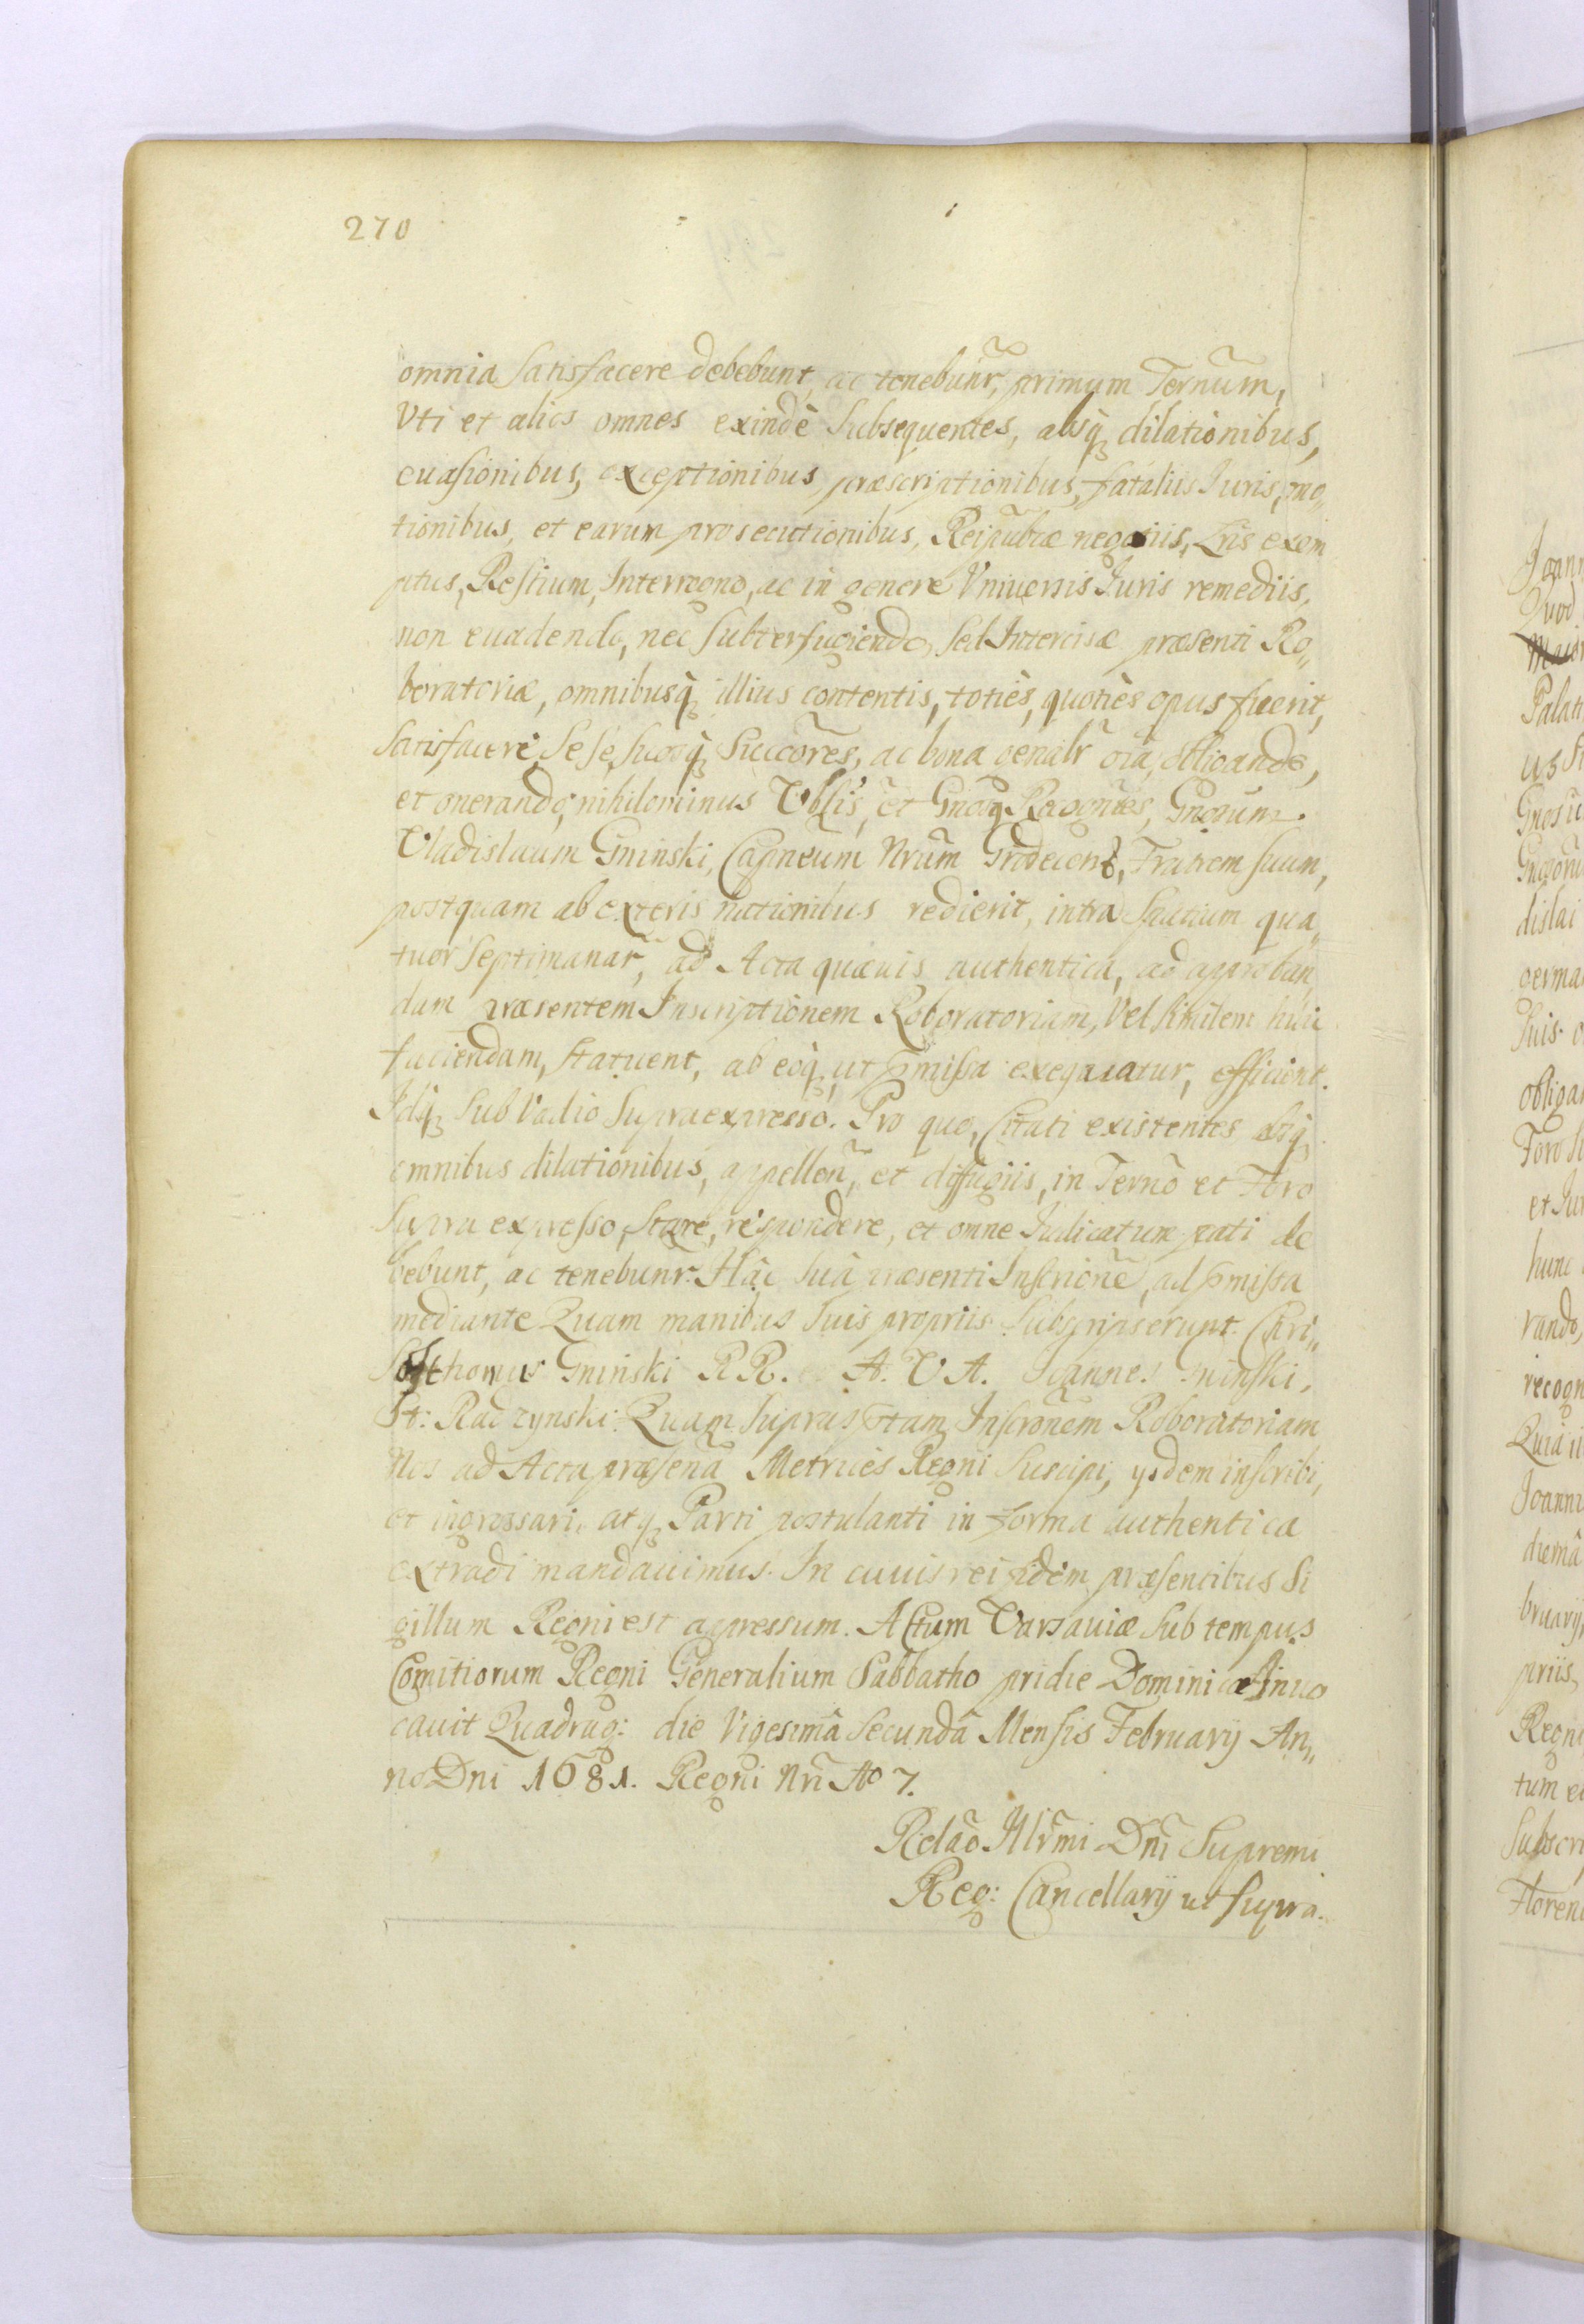 270
omnia Satisfacere debebunt, ac tenebunr̃, primum Ternũm,
Vti et alios omnes exindè Subsequentes, absq₃ dilationibus,
euasionibus, exceptionibus præscriptionibus, fataliis Iuris, mo„
tionibus, et earum prosecutionibus, Reipublcæ negotiis, Lris exem
ptus, Restium, Interregno, ac in genere Vniuersis Iuris remediis,
non euadendo, nec Subterfugiendo, Sed Intercisæ præsenti Ro„
boratoriæ, omnibusq₃ illius contentis, totiès, quotiès opus fuerit,
Satisfacere, Se se, Suosq₃ Succor̃es, ac bona genalr̃ oĩa, obligando,
et onerando, nihilominus Vblis, et Gnosq₃ Racognt̃es, Gnosum.
Vladislaum Gninski, Capneum Nrũm Grodecens, Fratrem suum,
postquam ab exteris nationibus redierit, intra Spatium qua„
tuor Septimanar̃, ad Acta quæuis authentica, ad approban„
dam præsentem Inscriptionem Roboratoriam, Vel Similem huic
faciendam, Statuent, ab eoq₃, ut pmissa exequatur, efficient.
Idq₃ Sub Vadio Supraexpresso. Pro quo, Citati existentes absq₃
omnibus dilationibus, appellon̄, et diffugiis, in Ternõ et Foro
Supra expresso, Stare, respondere, et omne Iudicatum pati de
bebunt, ac tenebunr̃. Hâc Suâ præsenti Inscrione, ad pmissa
mediante Quam manibus Suis propriis Subscripserunt. Chri„
Sosthomus Gninski R R. A. V A. Ioannes Gninski,
St: Radzynski: Quam Supraspt̃am Inscronem Roboratoriam
Nos ad Acta præsena Metrices Regni Suscipi, ysdem inscribi,
et ingrossari, atq₃ Parti postulanti in forma authentica
extradi mandauimus. In cuius rei fidem præsentibus Si
gillum Regni est appressum. Actum Varsauiæ Sub tempus
Comitiorum Regni Generalium Sabbatho pridie Dominicæ Inuo
cauit Quadrag: die Vigesimâ Secundâ Mensis February An„
no Dni 1681. Regni Nrĩ Ao 7.
Relaõ Illrm̃i Dnĩ Supremi
Reg: Cancellarij ut Supra.